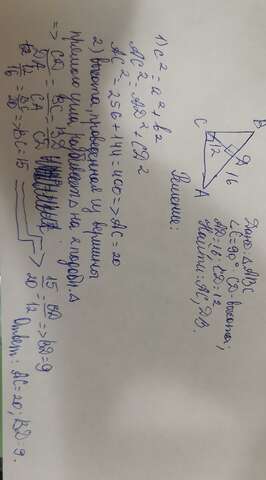 C
B
12
D
16
A
Дано: ΔABC
∠C=90°, CD-высота;
AD=16; CD=12
Найти: AC, DB.
Решение:
1) c² = a² + b²
AC² = AD² + CD²
AC² = 256 + 144 = 400 => AC = 20
2) высота, проведенная из вершины
прямого угла, разбивает Δ на 2 подобн. Δ
=> CD/DA = BC/CA = BD/CD
12/16 = BC/20 => BC = 15
15/20 = BD/12 => BD = 9
Ответ: AC = 20; BD = 9.